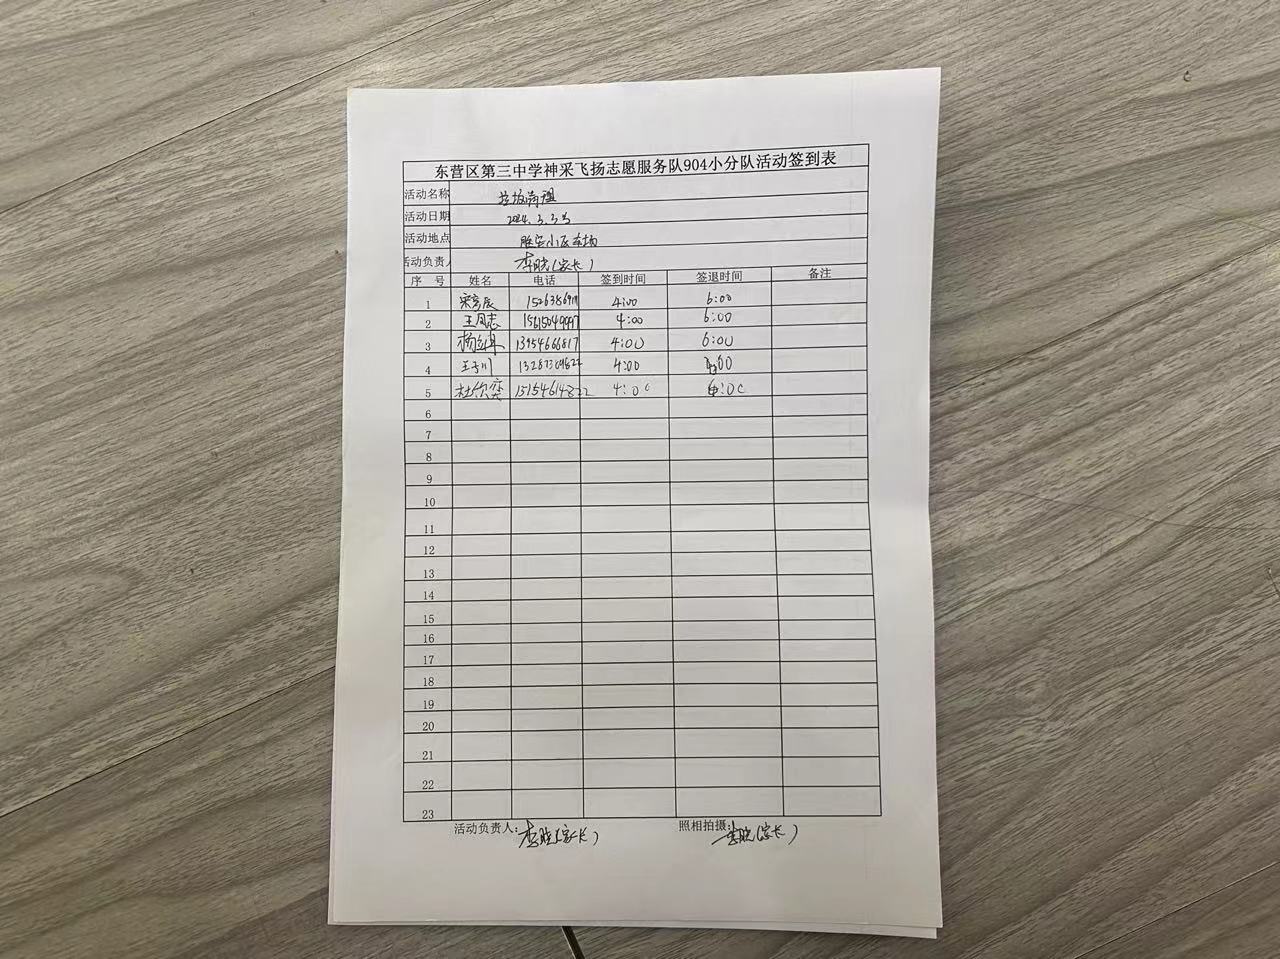 东营区第三中学神采飞扬志愿服务队904小分队活动签到表
活动名称 垃圾清理
活动日期 2024.3.3
活动地点 胜宏小区车场
活动负责人 李晓(家长)
序 号 姓名 电话 签到时间 签退时间 备注
1 宋彦辰 4:00 6:00
2 王同志 15615049997 4:00 6:00
3 13954666817 4:00 6:00
4 王子川 4:00
5 杜 4:00 6:00
6
7
8
9
10
11
12
13
14
15
16
17
18
19
20
21
22
23
活动负责人: 李晓(家长) 照相拍摄: 李晓(家长)